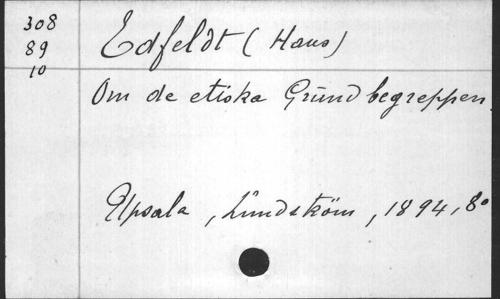 308
89
10
Edfeldt (Hans)
Om de etiska Grundbegreppen.
Upsala, Lundström, 1894, 8°